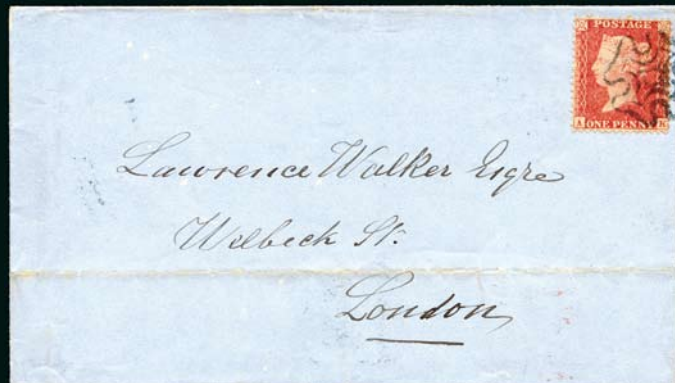 POSTAGE
A ONE PENNY K
Lawrence Walker Esqre
Welbeck St.
London